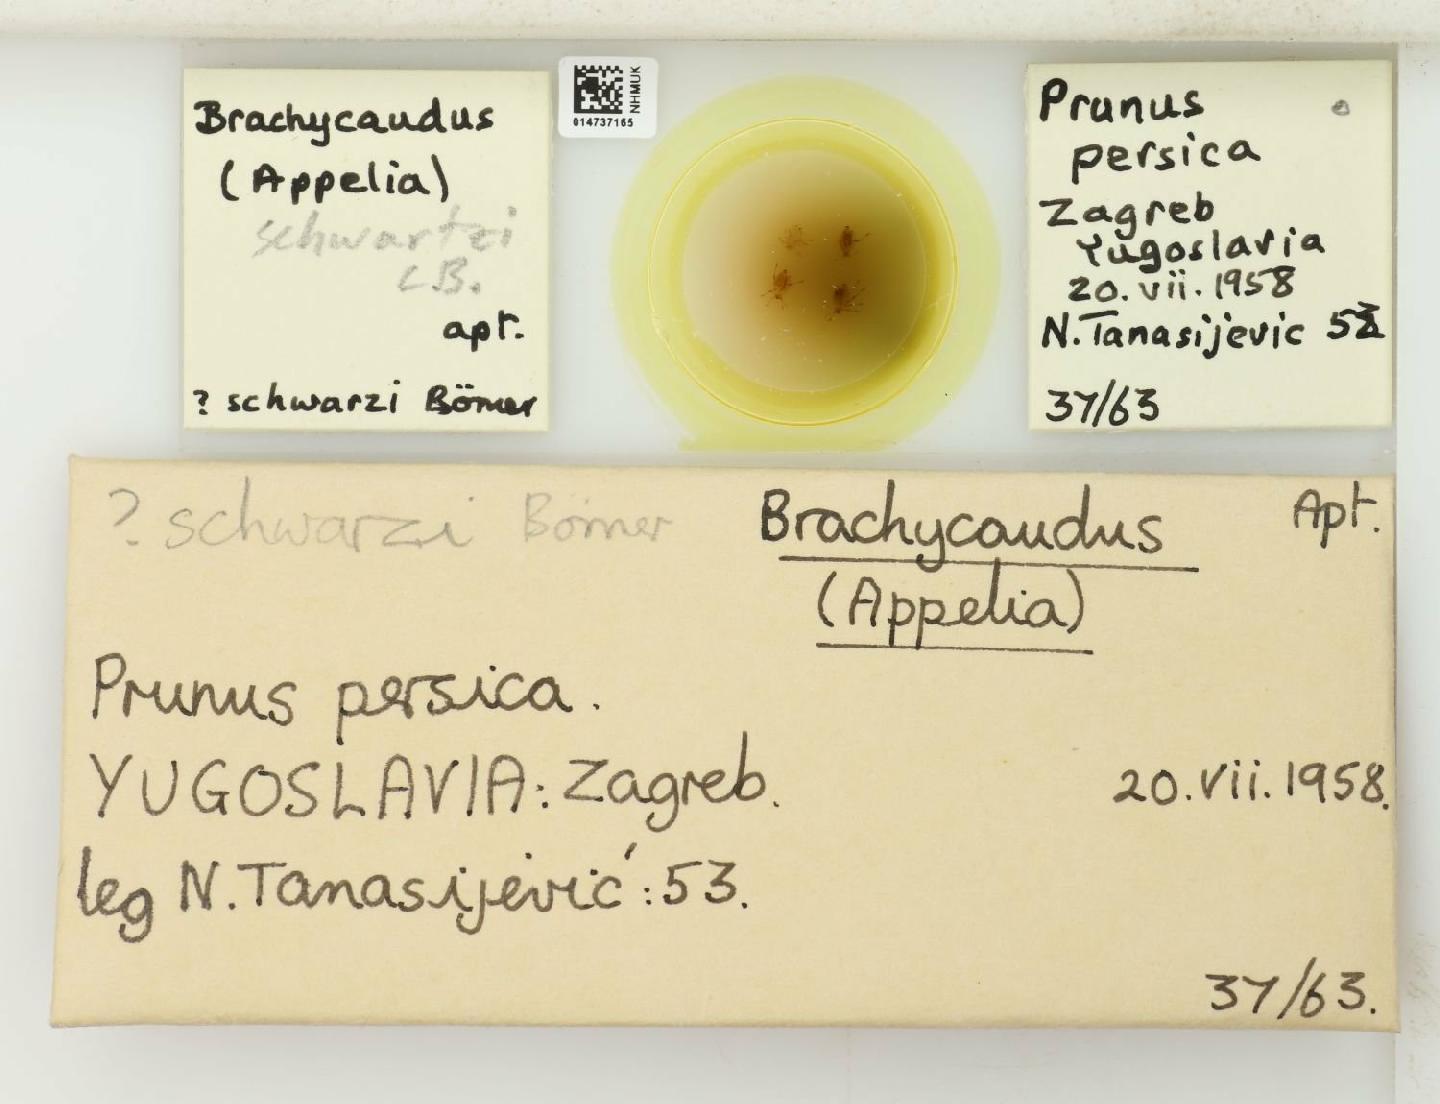 Brachycaudus
(Appelia)
schwartzi
C.B.
apt.
? schwarzi Börner
NHMUK
014737165
Prunus
persica
Zagreb
Yugoslavia
20.vii.1958
N. Tanasijevic
37/63
? schwarzi Börner
Brachycaudus
Apt.
(Appelia)
Prunus persica.
YUGOSLAVIA: Zagreb.
20.vii.1958.
leg N. Tanasijević: 53.
37/63.